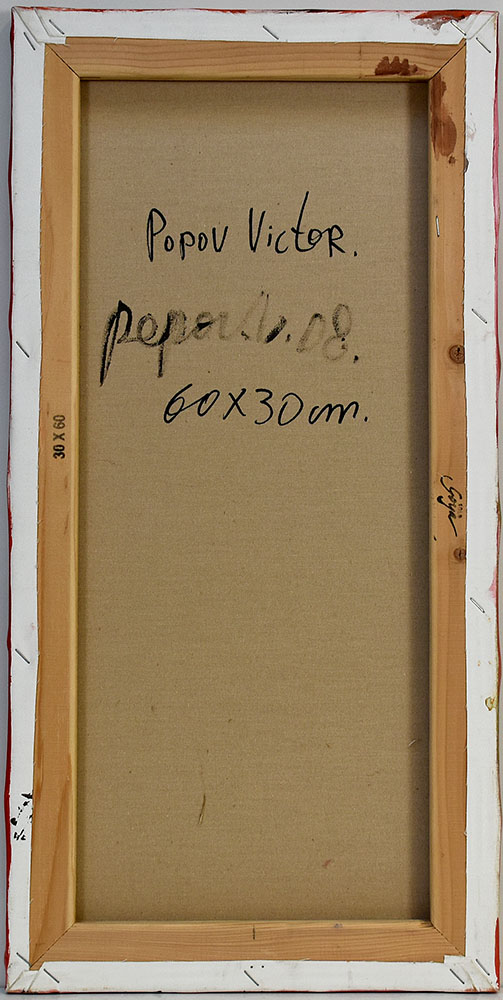 Popov Victor.
popov.V.08.
60x30cm.
30 X 60
Goya